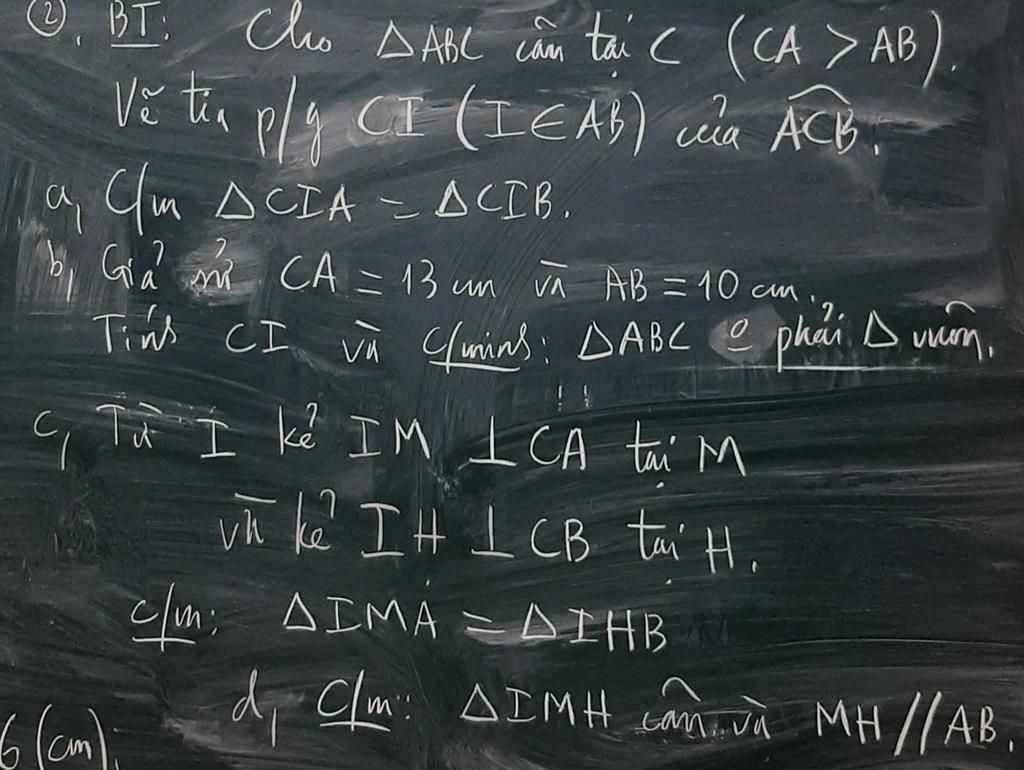 ②. BT: Cho △ABC cân tại C (CA > AB).
Vẽ tia p/g CI (I∈AB) của ACB.
a, C/m △CIA = △CIB.
b, Giả sử CA = 13 cm và AB = 10 cm.
Tính CI và c/minh: △ABC o phải △ vuông.
c, Từ I kẻ IM ⊥ CA tại M
và kẻ IH ⊥ CB tại H.
c/m: △IMA = △IHB
d, C/m: △IMH cân và MH // AB.
6 (cm).